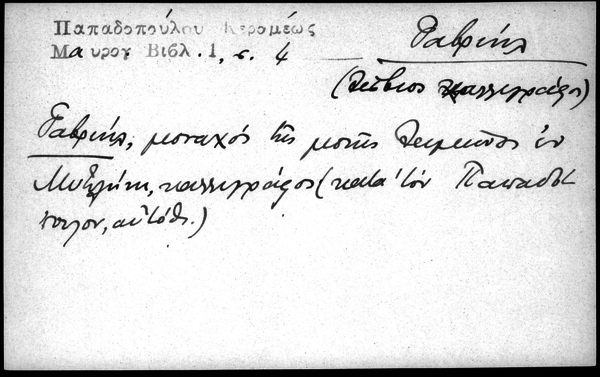 Παπαδοπούλου Κεραμέως
Μαυρογ Βιβλ. 1, σ. 4
Γαβριήλ
(Λέσβιος καλλιγράφος)
Γαβριήλ, μοναχός τῆς μονῆς Λειμῶνος ἐν
Μυτιλήνῃ, καλλιγράφος (κατὰ τὸν Παπαδό
πουλον, αὐτόθι.)